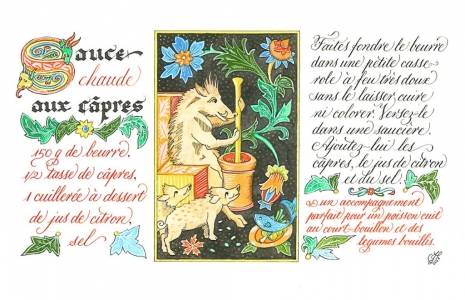 Sauce
chaude
aux câpres
150 g de beurre,
1/2 tasse de câpres,
1 cuillerée à dessert
de jus de citron,
sel
Faites fondre le beurre
dans une petite casse-
role à feu très doux
sans le laisser cuire
ni colorer. Versez-le
dans une saucière.
Ajoutez-lui les
câpres, le jus de citron
et du sel.
un accompagnement
parfait pour un poisson cuit
au court-bouillon et des
legumes bouillis.